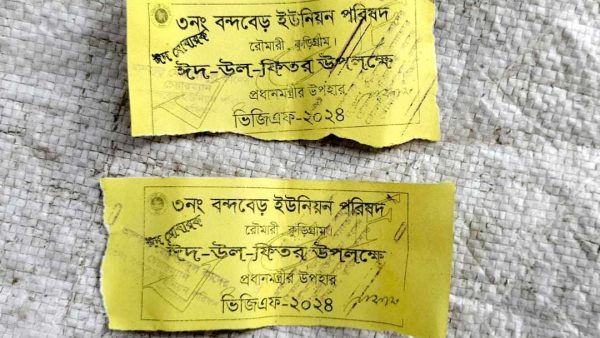 ৩নং বন্দবেড় ইউনিয়ন পরিষদ
রৌমারী, কুড়িগ্রাম।
ঈদ মোবারক
ঈদ-উল-ফিতর উপলক্ষে
প্রধানমন্ত্রীর উপহার
ভিজিএফ-২০২৪
৩নং বন্দবেড় ইউনিয়ন পরিষদ
রৌমারী, কুড়িগ্রাম।
ঈদ মোবারক
ঈদ-উল-ফিতর উপলক্ষে
প্রধানমন্ত্রীর উপহার
ভিজিএফ-২০২৪